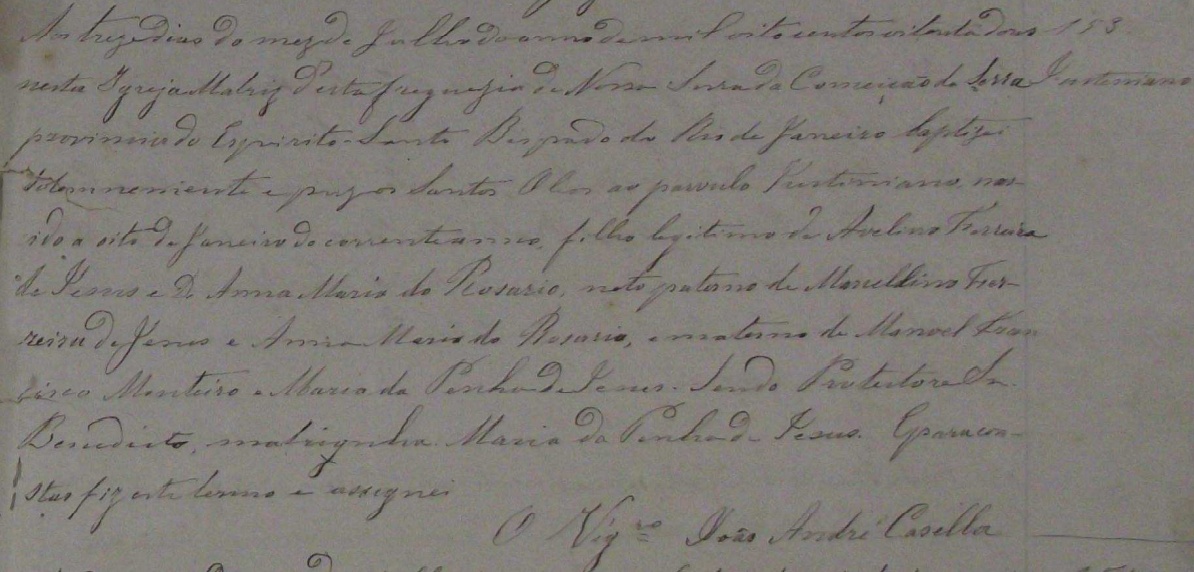 Aos treze dias do mez de Julho do anno de mil oito centos oitenta dous 153
nesta Igreja Matriz d'esta freguezia de Nossa Senra da Conceição da Serra Justiniano
provincia do Espirito-Santo Bispado do Rio de Janeiro baptizei
solemnemente e puz os Santos Oleos ao parvulo Justiniano, nas-
cido a oito de Janeiro do corrente anno, filho legitimo de Avelino Ferreira
de Jesus e D. Anna Maria do Rosario, neto paterno de Marcellino Fer-
reira de Jesus e Anna Maria do Rosario, e materno de Manoel Fran
cisco Monteiro e Maria da Penha de Jesus. Sendo Protector S.
Benedicto, madrinha Maria da Penha de Jesus. E para con-
star fiz este termo e assignei
O Vigro João André Casella